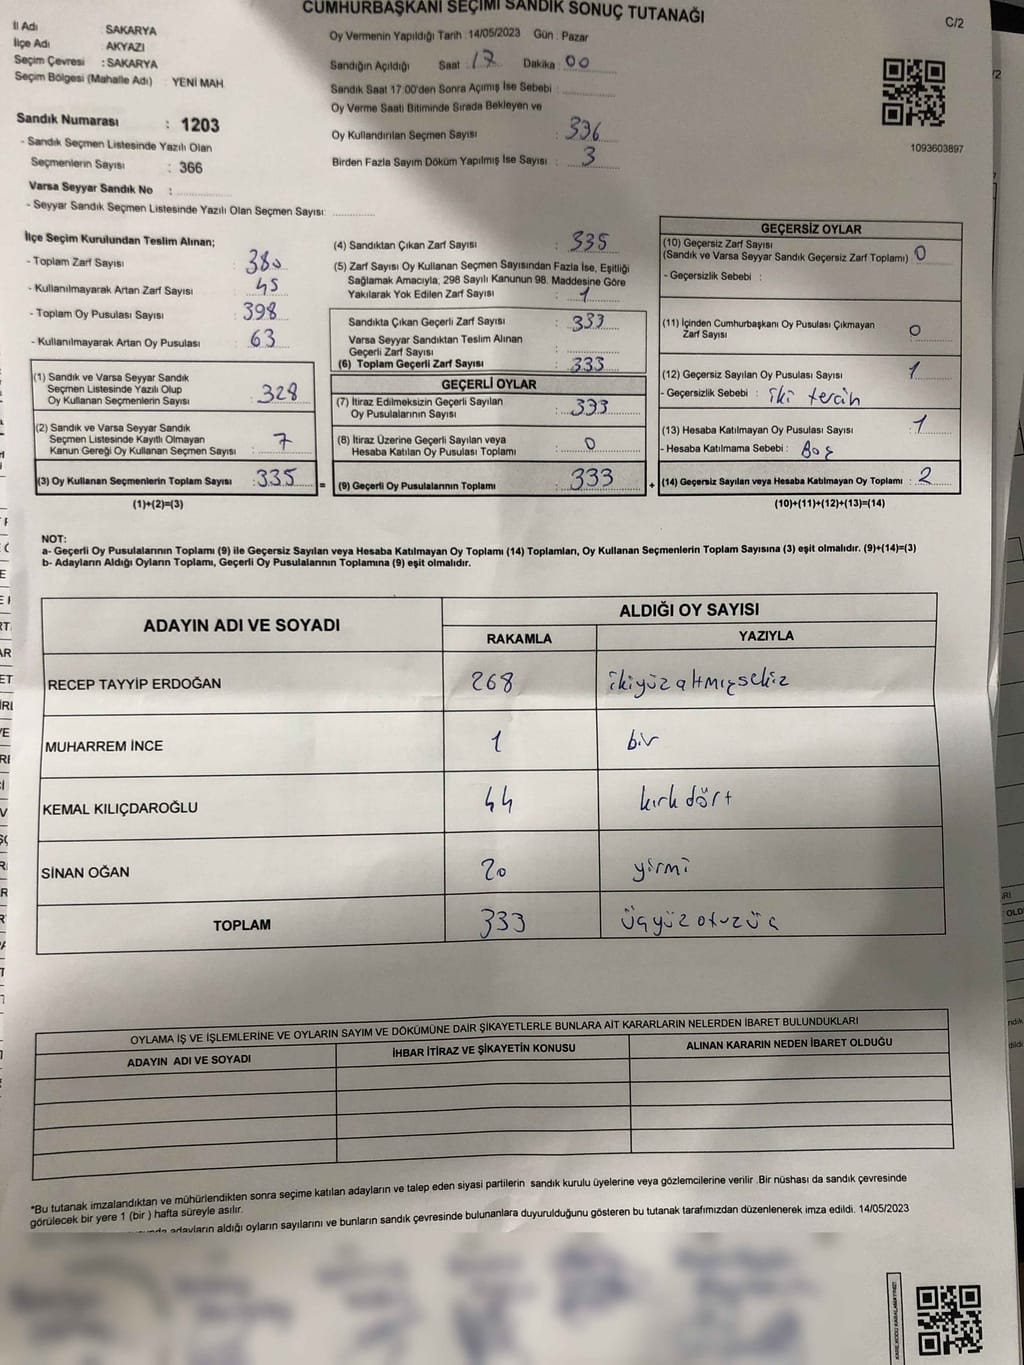 CUMHURBAŞKANI SEÇİMİ SANDIK SONUÇ TUTANAĞI
C/2
İl Adı : SAKARYA
İlçe Adı : AKYAZI
Seçim Çevresi : SAKARYA
Seçim Bölgesi (Mahalle Adı) : YENİ MAH
Sandık Numarası : 1203
- Sandık Seçmen Listesinde Yazılı Olan
Seçmenlerin Sayısı : 366
Varsa Seyyar Sandık No :
- Seyyar Sandık Seçmen Listesinde Yazılı Olan Seçmen Sayısı:
Oy Vermenin Yapıldığı Tarih : 14/05/2023 Gün : Pazar
Sandığın Açıldığı Saat : 17 Dakika : 00
Sandık Saat 17.00'den Sonra Açımış İse Sebebi :
Oy Verme Saati Bitiminde Sırada Bekleyen ve
Oy Kullandırılan Seçmen Sayısı : 336
Birden Fazla Sayım Döküm Yapılmış İse Sayısı : 3
1093603897
İlçe Seçim Kurulundan Teslim Alınan;
- Toplam Zarf Sayısı : 380
- Kullanılmayarak Artan Zarf Sayısı : 45
- Toplam Oy Pusulası Sayısı : 398
- Kullanılmayarak Artan Oy Pusulası : 63
(1) Sandık ve Varsa Seyyar Sandık
Seçmen Listesinde Yazılı Olup
Oy Kullanan Seçmenlerin Sayısı : 328
(2) Sandık ve Varsa Seyyar Sandık
Seçmen Listesinde Kayıtlı Olmayan
Kanun Gereği Oy Kullanan Seçmen Sayısı : 7
(3) Oy Kullanan Seçmenlerin Toplam Sayısı : 335 =
(1)+(2)=(3)
(4) Sandıktan Çıkan Zarf Sayısı : 335
(5) Zarf Sayısı Oy Kullanan Seçmen Sayısından Fazla İse, Eşitliği
Sağlamak Amacıyla, 298 Sayılı Kanunun 98. Maddesine Göre
Yakılarak Yok Edilen Zarf Sayısı : 1
Sandıkta Çıkan Geçerli Zarf Sayısı : 333
Varsa Seyyar Sandıktan Teslim Alınan
Geçerli Zarf Sayısı :
(6) Toplam Geçerli Zarf Sayısı : 333
GEÇERLİ OYLAR
(7) İtiraz Edilmeksizin Geçerli Sayılan
Oy Pusulalarının Sayısı : 333
(8) İtiraz Üzerine Geçerli Sayılan veya
Hesaba Katılan Oy Pusulası Toplamı : 0
(9) Geçerli Oy Pusulalarının Toplamı : 333 +
GEÇERSİZ OYLAR
(10) Geçersiz Zarf Sayısı
(Sandık ve Varsa Seyyar Sandık Geçersiz Zarf Toplamı) : 0
- Geçersizlik Sebebi :
(11) İçinden Cumhurbaşkanı Oy Pusulası Çıkmayan
Zarf Sayısı : 0
(12) Geçersiz Sayılan Oy Pusulası Sayısı : 1
- Geçersizlik Sebebi : iki tercih
(13) Hesaba Katılmayan Oy Pusulası Sayısı : 1
- Hesaba Katılmama Sebebi : Boş
(14) Geçersiz Sayılan veya Hesaba Katılmayan Oy Toplamı : 2
(10)+(11)+(12)+(13)=(14)
NOT:
a- Geçerli Oy Pusulalarının Toplamı (9) ile Geçersiz Sayılan veya Hesaba Katılmayan Oy Toplamı (14) Toplamları, Oy Kullanan Seçmenlerin Toplam Sayısına (3) eşit olmalıdır. (9)+(14)=(3)
b- Adayların Aldığı Oyların Toplamı, Geçerli Oy Pusulalarının Toplamına (9) eşit olmalıdır.
ADAYIN ADI VE SOYADI
ALDIĞI OY SAYISI
RAKAMLA YAZIYLA
RECEP TAYYİP ERDOĞAN 268 ikiyüzaltmışsekiz
MUHARREM İNCE 1 bir
KEMAL KILIÇDAROĞLU 44 kırkdört
SİNAN OĞAN 20 yirmi
TOPLAM 333 üçyüzotuzüç
OYLAMA İŞ VE İŞLEMLERİNE VE OYLARIN SAYIM VE DÖKÜMÜNE DAİR ŞİKAYETLERLE BUNLARA AİT KARARLARIN NELERDEN İBARET BULUNDUKLARI
ADAYIN ADI VE SOYADI İHBAR İTİRAZ VE ŞİKAYETİN KONUSU ALINAN KARARIN NEDEN İBARET OLDUĞU
*Bu tutanak imzalandıktan ve mühürlendikten sonra seçime katılan adayların ve talep eden siyasi partilerin sandık kurulu üyelerine veya gözlemcilerine verilir .Bir nüshası da sandık çevresinde
görülecek bir yere 1 (bir ) hafta süreyle asılır.
adayların aldığı oyların sayılarını ve bunların sandık çevresinde bulunanlara duyurulduğunu gösteren bu tutanak tarafımızdan düzenlenerek imza edildi. 14/05/2023